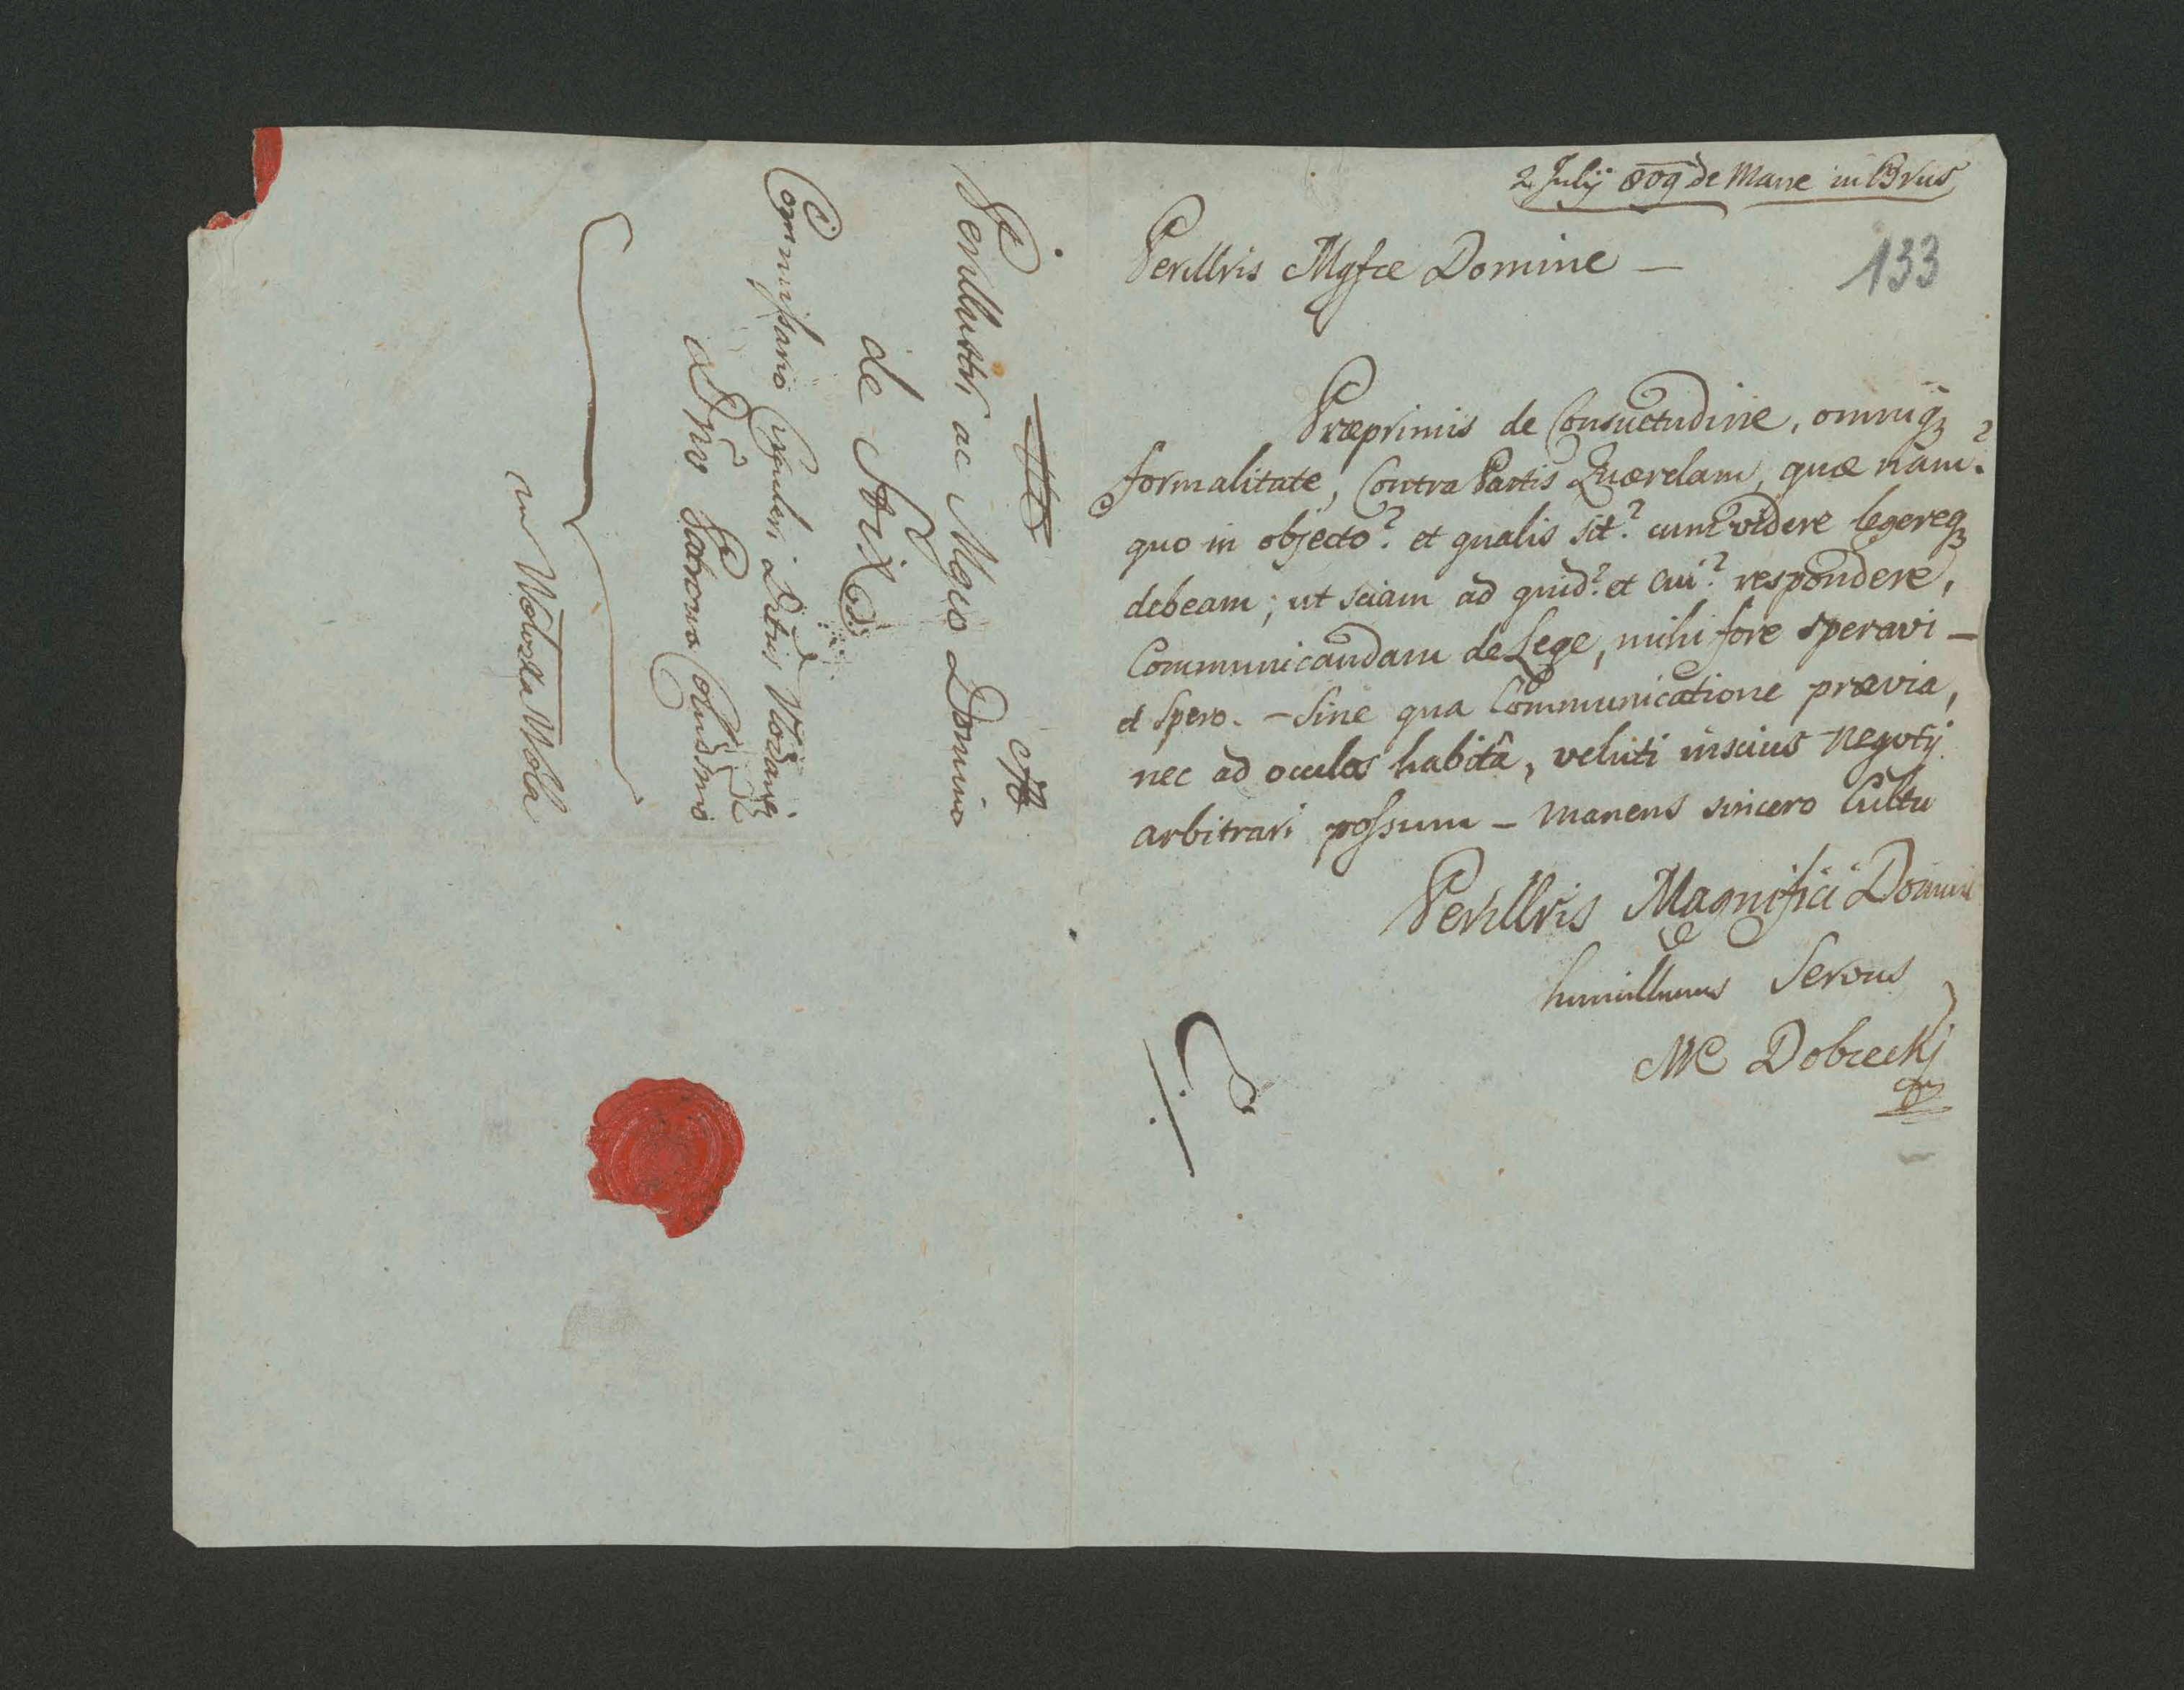 2 Julij 809 de Mane in Brus
133
Perillris Mgfce Domine —
Præprimis de Consuetudine, omniq3
formalitate, Contra Partis Quærelam, quæ nam?
quo in objecto? et qualis sit? cum videre legereq3
debeam; ut sciam ad quid? et cui? respondere,
Communicandam de Lege, mihi fore speravi —
et spero. — Sine qua Communicatione prævia,
nec ad oculos habitâ, veluti inscius negotij
arbitrari possum — manens sincero Cultu
Perillris Magnifici Domini
humillimus Servus
MC Dobrecki
Perillustri ac Mgco Domino
de Fix
Commissario Circulari Viodani
Dno Patrono Colndsmo
in Wolodza Wola